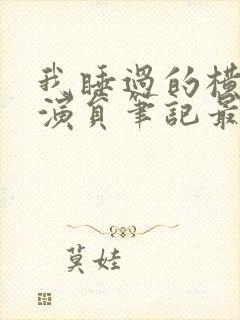 我睡過的横
演員筆記最
莫娃